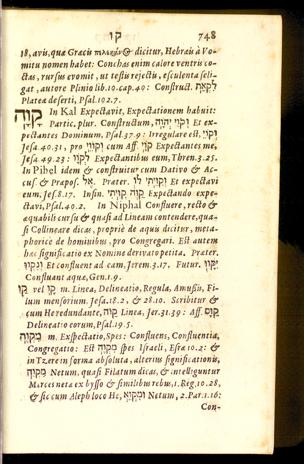 קו 748
18, avis, quæ Græcis dicitur, Hebrais à Vo-
mitu nomen habet: Conchas enim calore ventris co-
ctas, rursus evomit, ut testis rejectis, esculenta seli-
gat, autore Plinio lib.10. cap. 40: Construct. קְאַת
Platea deserti, Psal. 102.7.
קָוָה In Kal Expectavit, Expectationem habuit:
Partic. plur. Construct. וְקֹוֵי יְהוָה, Et ex-
pectantes Dominum, Psal. 37.9: Irregulare est,
Jesa. 40.31, pro וְקֹוֵי cum Aff. קֹוָי Expectantes me,
Jesa. 49.23: לְקֹוָו Expectantibus eum, Thren. 3.25.
In Pihel idem & construitur cum Dativo & Ac-
cus. & Præpos. אֶל. Præter. וְקִוֵּיתִי לוֹ Et expectavi
eum, Jes. 8.17. Infin. קַוֹּה קִוִּיתִי Expectando expe-
ctavi, Psal. 40.2. In Niphal Confluere, recto &
æquabili cursu & quasi ad Lineam contendere, qua-
si Collineare dicas, propriè de aquis dicitur, meta-
phoricè de hominibus, pro Congregari. Est autem
hæc significatio ex Nomine derivato petita. Præter.
וְנִקְווּ Et confluent ad eam, Jerem. 3.17. Futur. יִקָּווּ
Confluant aquæ, Gen. 1.9.
קַו vel קָו m. Linea, Delineatio, Regula, Amussis, Fi-
lum mensorium. Jesa. 18.2, & 28.10. Scribitur &
cum He redundante, קָוֶה Linea, Jer. 31.39: Aff. קַוָּם
Delineatio eorum, Psal. 19.5.
מִקְוֶה m. Exspectatio, Spes: Confluens, Confluentia,
Congregatio: Est מִקְוֶה spes Israeli, Esra 10.2: &
in Tzere in forma absoluta, alterius significationis,
מִקְוֵה Netum, quasi Filatum dicas, & intelliguntur
Merces neta ex bysso & similibus rebus, 1. Reg. 10.28,
& sic cum Aleph loco He, וּמִקְוֵא Netum, 2. Par. 1.16:
Con-